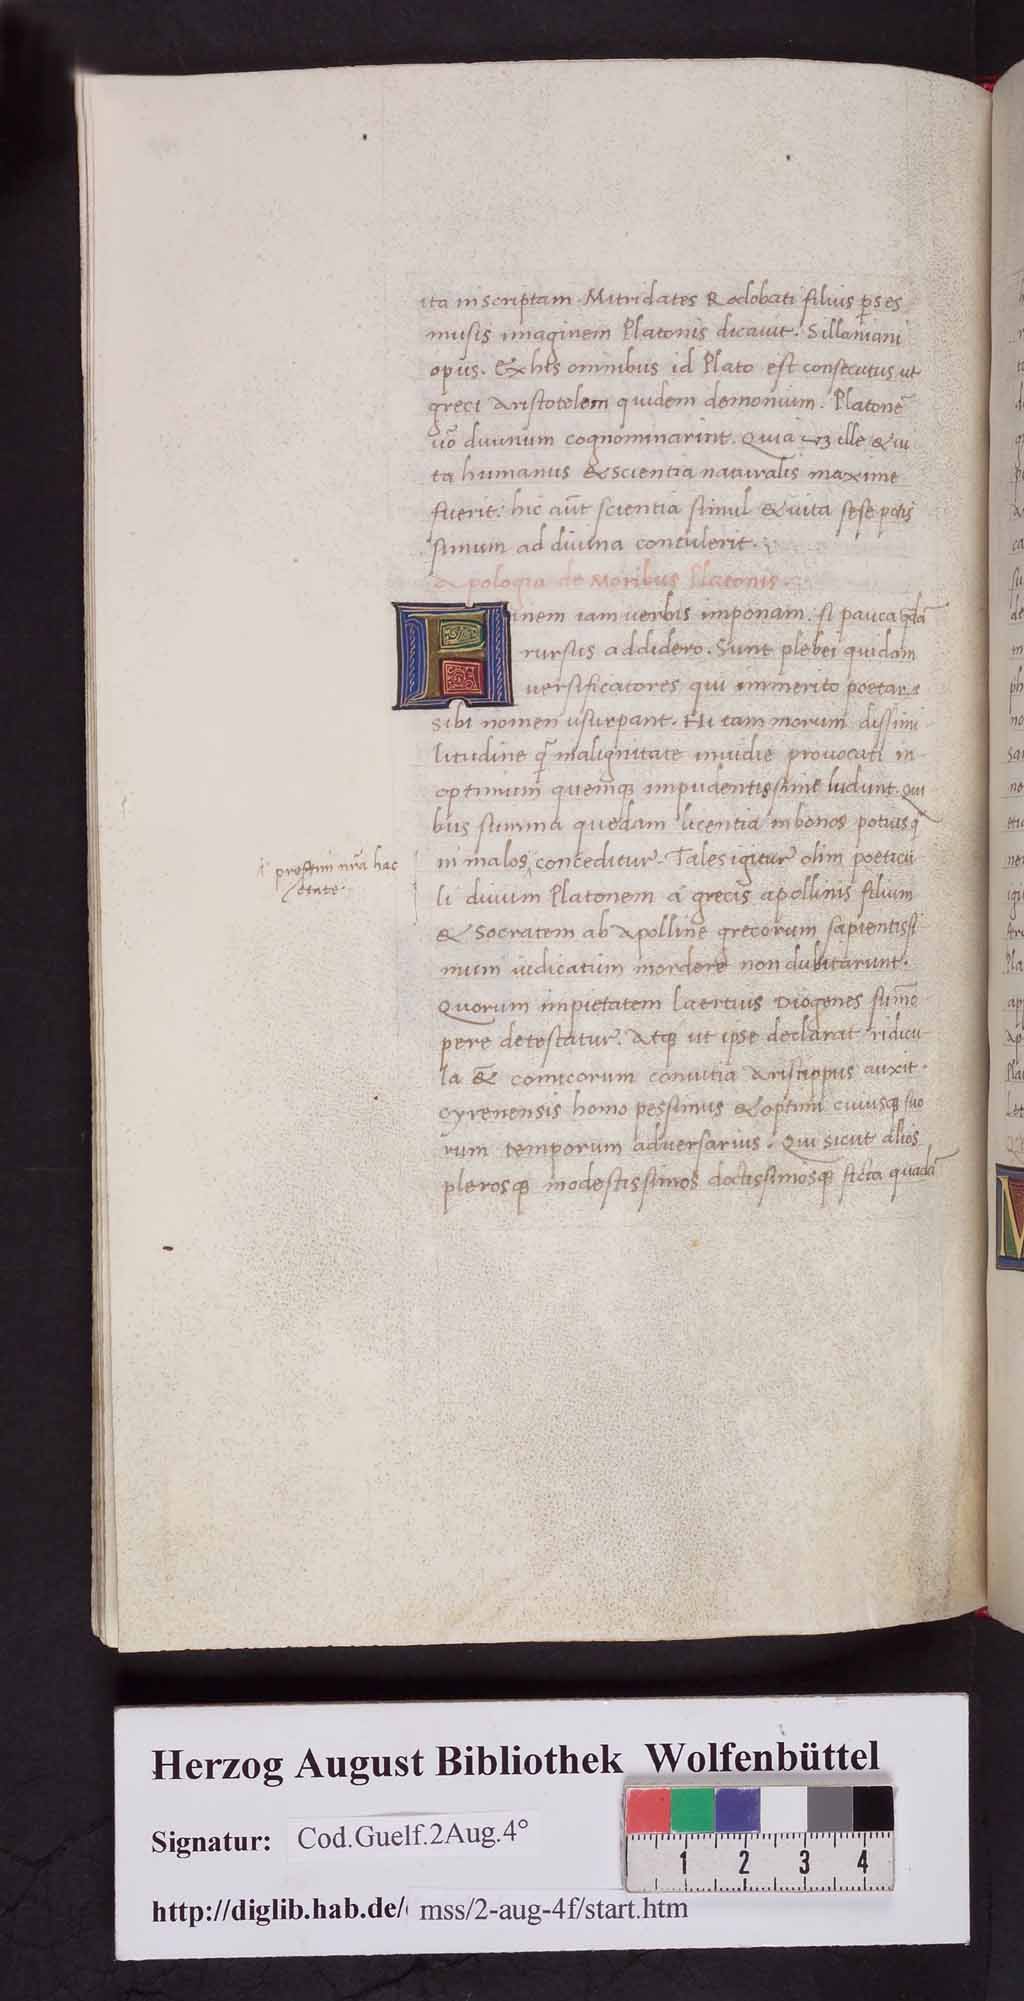 ita inscriptam. Mitridates Rodobati filius p̱ses
musis imaginem Platonis dicauit. Sillaniani
opus. Ex his omnibus id Plato est consecutus ut
greci Aristotelem quidem demonium. Platonē
uō diuinum cognominarint. Quia ille & ui
ta humanus & scientia naturalis maxime
fuerit: hic aūt scientia simul & uita sese potis
simum ad diuina contulerit.
Apologia de Moribus Platonis.
Finem iam uerbis imponam. si pauca q̄dā
rursus addidero. Sunt plebei quidam
uersificatores qui immerito poetarū
sibi nomen usurpant. Hi tam morum dissimi
litudine q̄ malignitate inuidie prouocati in
optimum quemq; impudentissime ludunt. Qui
bus summa quedam licentia in bonos potius q̄
in malos conceditur. Tales igitur olim poeticu
i presertim nr̄a hac
etate.
li diuum Platonem a grecis apollinis filium
& Socratem ab Apolline grecorum sapientissi
mum iudicatum mordere non dubitarunt.
Quorum impietatem laertius Diogenes sūmo
pere detestatur. Atq; ut ipse declarat ridicu
la & comicorum conuitia Aristippus auxit.
cyrenensis homo pessimus & optimi cuiusq; suo
rum temporum aduersarius. Qui sicut alios
plerosq; modestissimos doctissimosq; ficta quadā
Herzog August Bibliothek Wolfenbüttel
Signatur: Cod.Guelf.2Aug.4°
1 2 3 4
http://diglib.hab.de/ mss/2-aug-4f/start.htm